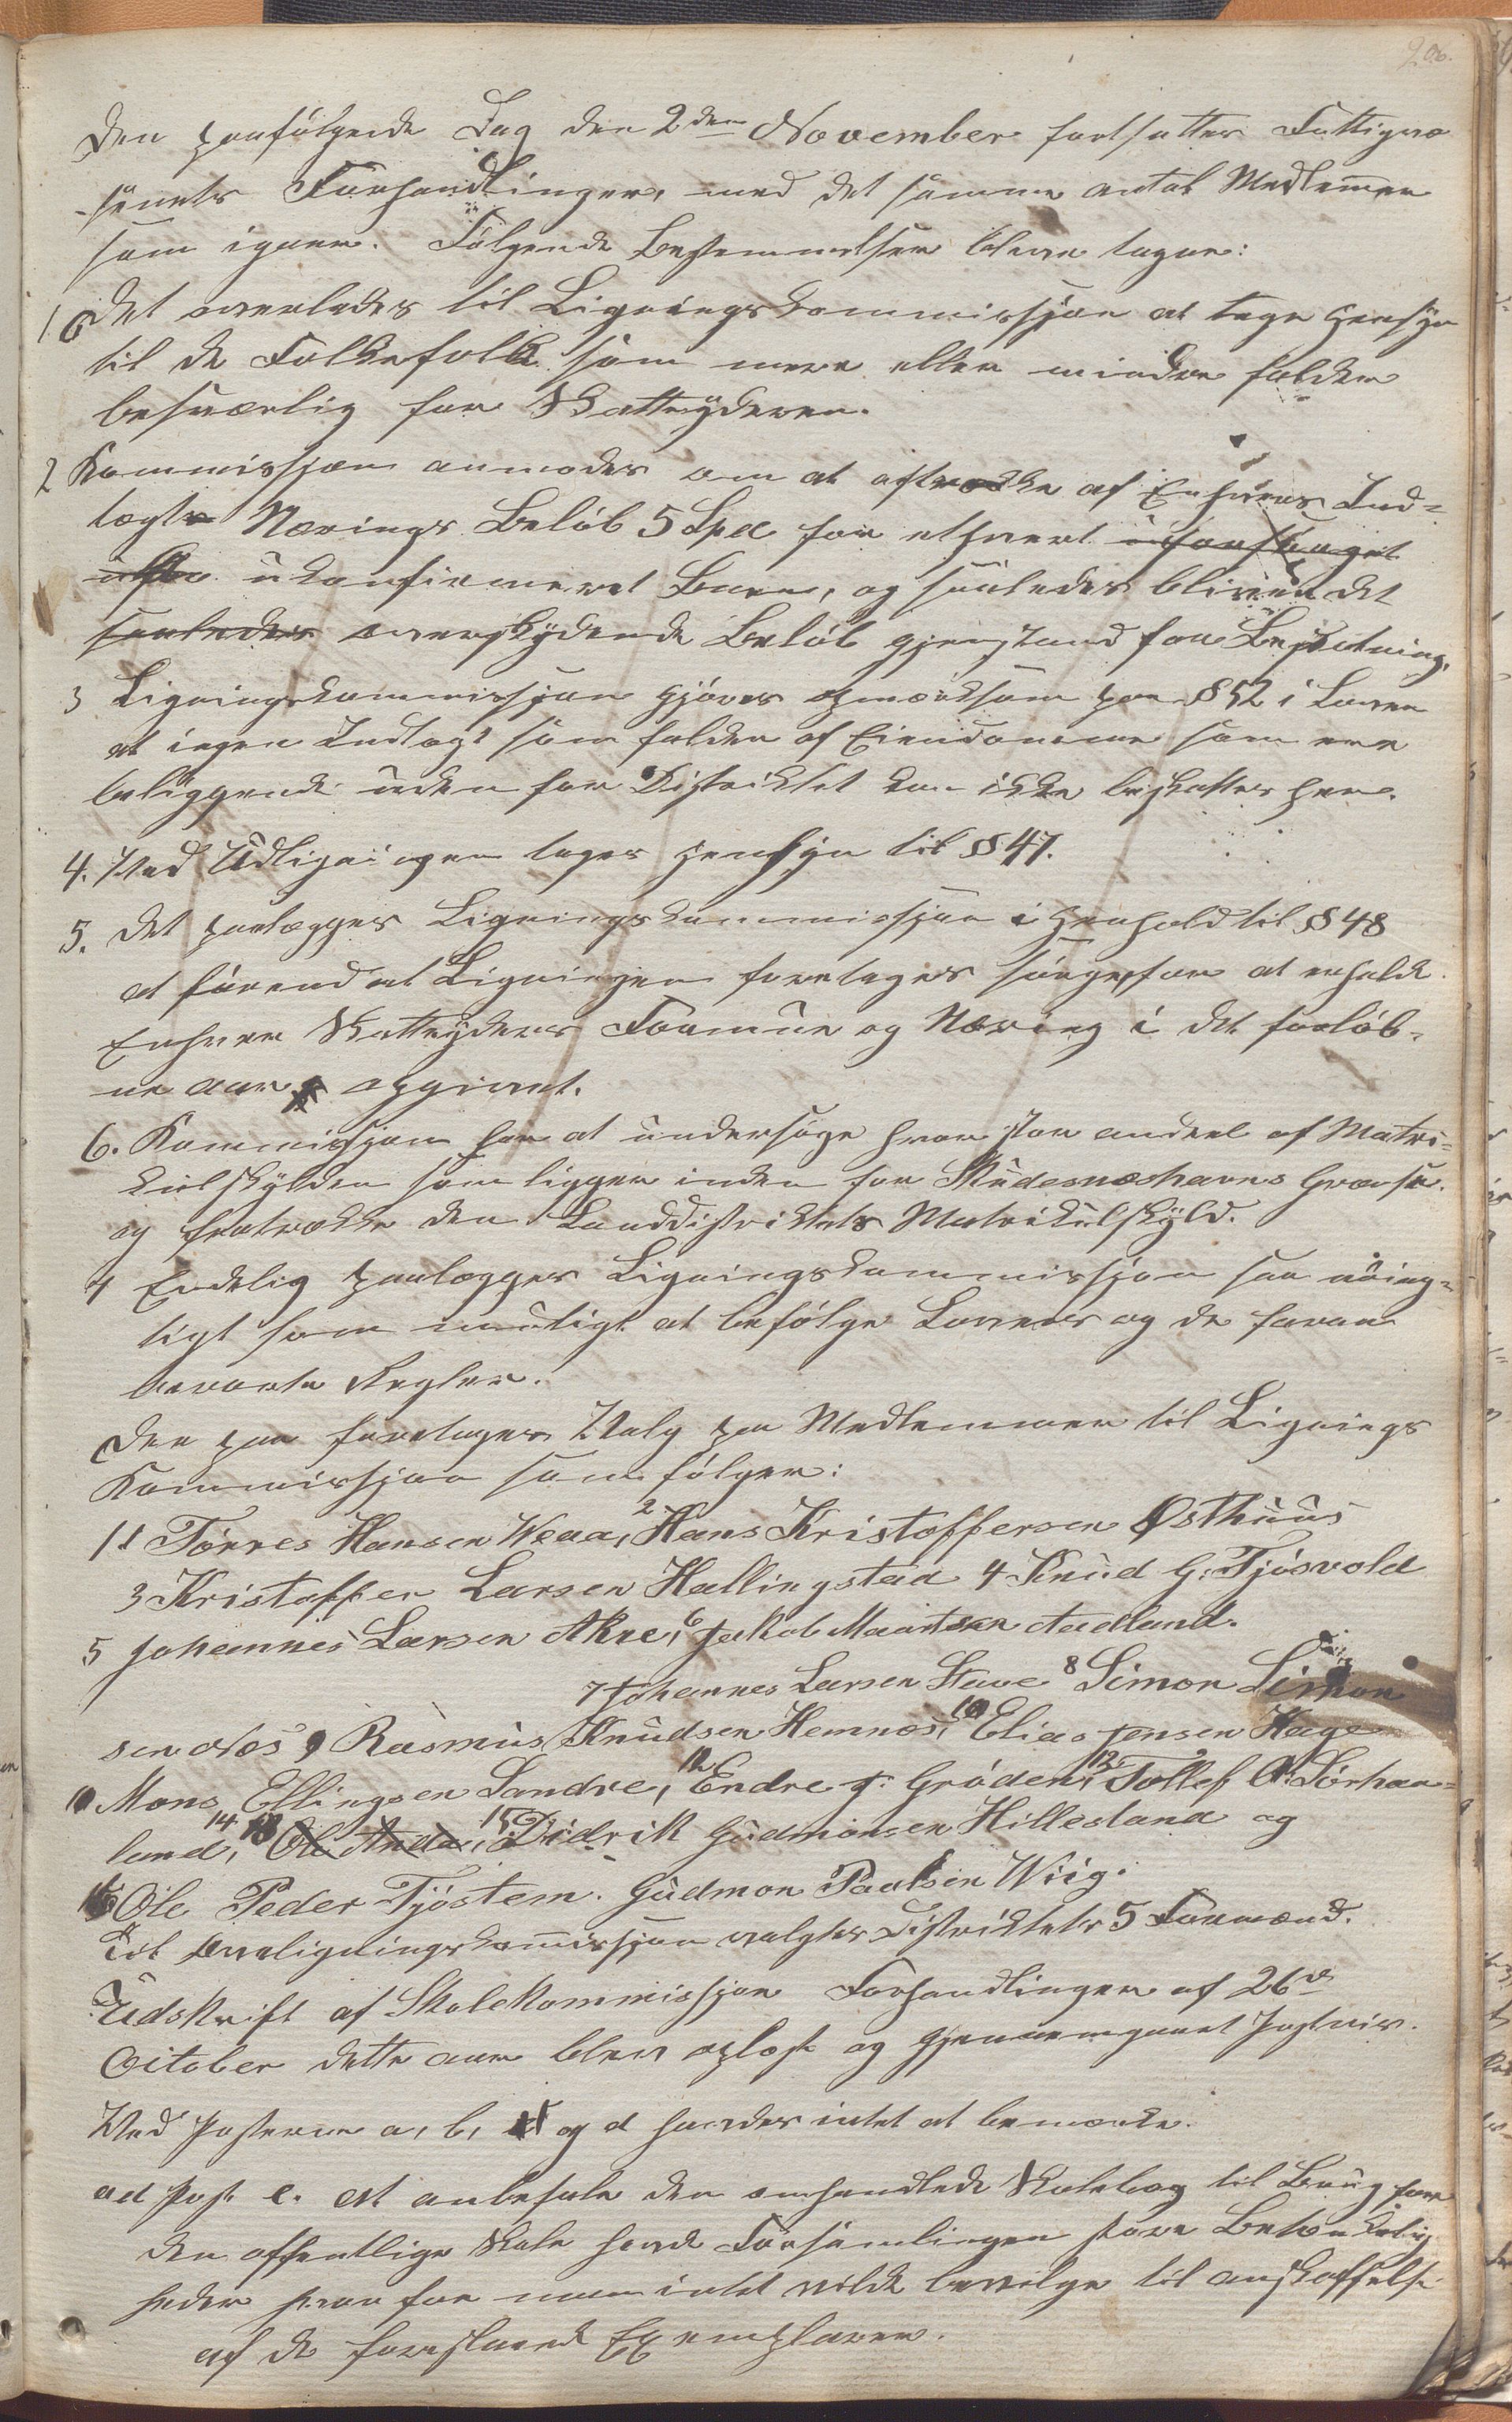 206.
Den paafølgende Dag den 2den November fortsattes Fattigvæ
-senets Forhandlinger, med det samme antal Medlemmer
som igaar. Følgende Bestemmelser bleve tagne:
1 Det overlades til Ligningskommissjon at tage Hensyn
til de Folkefolk som mere eller mindre falder
besværlig for Skatteyderen.
2 Kommissjon anmodes om at aftrække af Enhvers Ind-
tægts Nærings Beløb 5 Spd for ethvert
ukonfirmeret Barn, og saaledes bliver det
saaledes overskydende Beløb gjenstand for Beskatning.
3 Ligningskommissjon gjøres opmærksom paa § 52 i Loven
at ingen Indtægt som falder af Eiendomme som ere
beliggende uden for Distriktet kan ikke beskattes her.
4. Ved Udligningen tages Hensyn til § 47.
5. Det paalægges Ligningskommissjon i Henhold til § 48
at førend at Ligningen foretages sørge for at erholde
Enhver Skatteyders Formue og Næring i det forløb-
ne aar opgivet.
6. Kommissjon har at undersøge hvor stor andeel af Matri-
kulskylden som ligger inden for Skudesnæshavns Grænse
og fratrække den Landdistriktets Matrikulskyld.
7 Endelig paalægges Ligningskommissjon saa nøiag-
tigt som muligt at befølge Lovens og de foran
bevarte Regler.
Der paa foretages Valg paa Medlemmer til Lignings
Kommissjon som følger:
1 Tørres Hansen Weaa, 2 Hans Kristoffersen Østhuus
3 Kristoffer Larsen Hallingstad 4 Knud G. Tjøsvold
5 Johannes Larsen Akre, 6 Jakob Maartsen Aadland.
7 Johannes Larsen Stave 8 Simon Simon
sen Næs 9 Rasmus Knudsen Hemnæs, 10 Elias Jensen Hage
11 Mons Ellingsen Sandve, 12 Endre J. Grøden, 13 Tollef O. Sørhaa-
land, 14 Ole Anda, 15 Didrik Gudmonsen Hillesland og
16 Ole Peder Tjøstem. Gudmon Paulsen Wiig.
Til Overligningskommissjon valgtes Distriktets 5 Formænd.
Udskrift af Skolekommissjon Forhandlinger af 26de
October dette aar blev oplæst og gjennemgaaet Postvis.
Ved Posterne a, b, c og d havdes intet at bemærke.
ad Post e. At anbefale den omhandlede Skolebog til Brug for
den offentlige Skole havde Forsamlingen store Betænkelig
heder hvorfor man intet vilde bevilge til anskaffelse
af de foreslaaede Exemplarer.